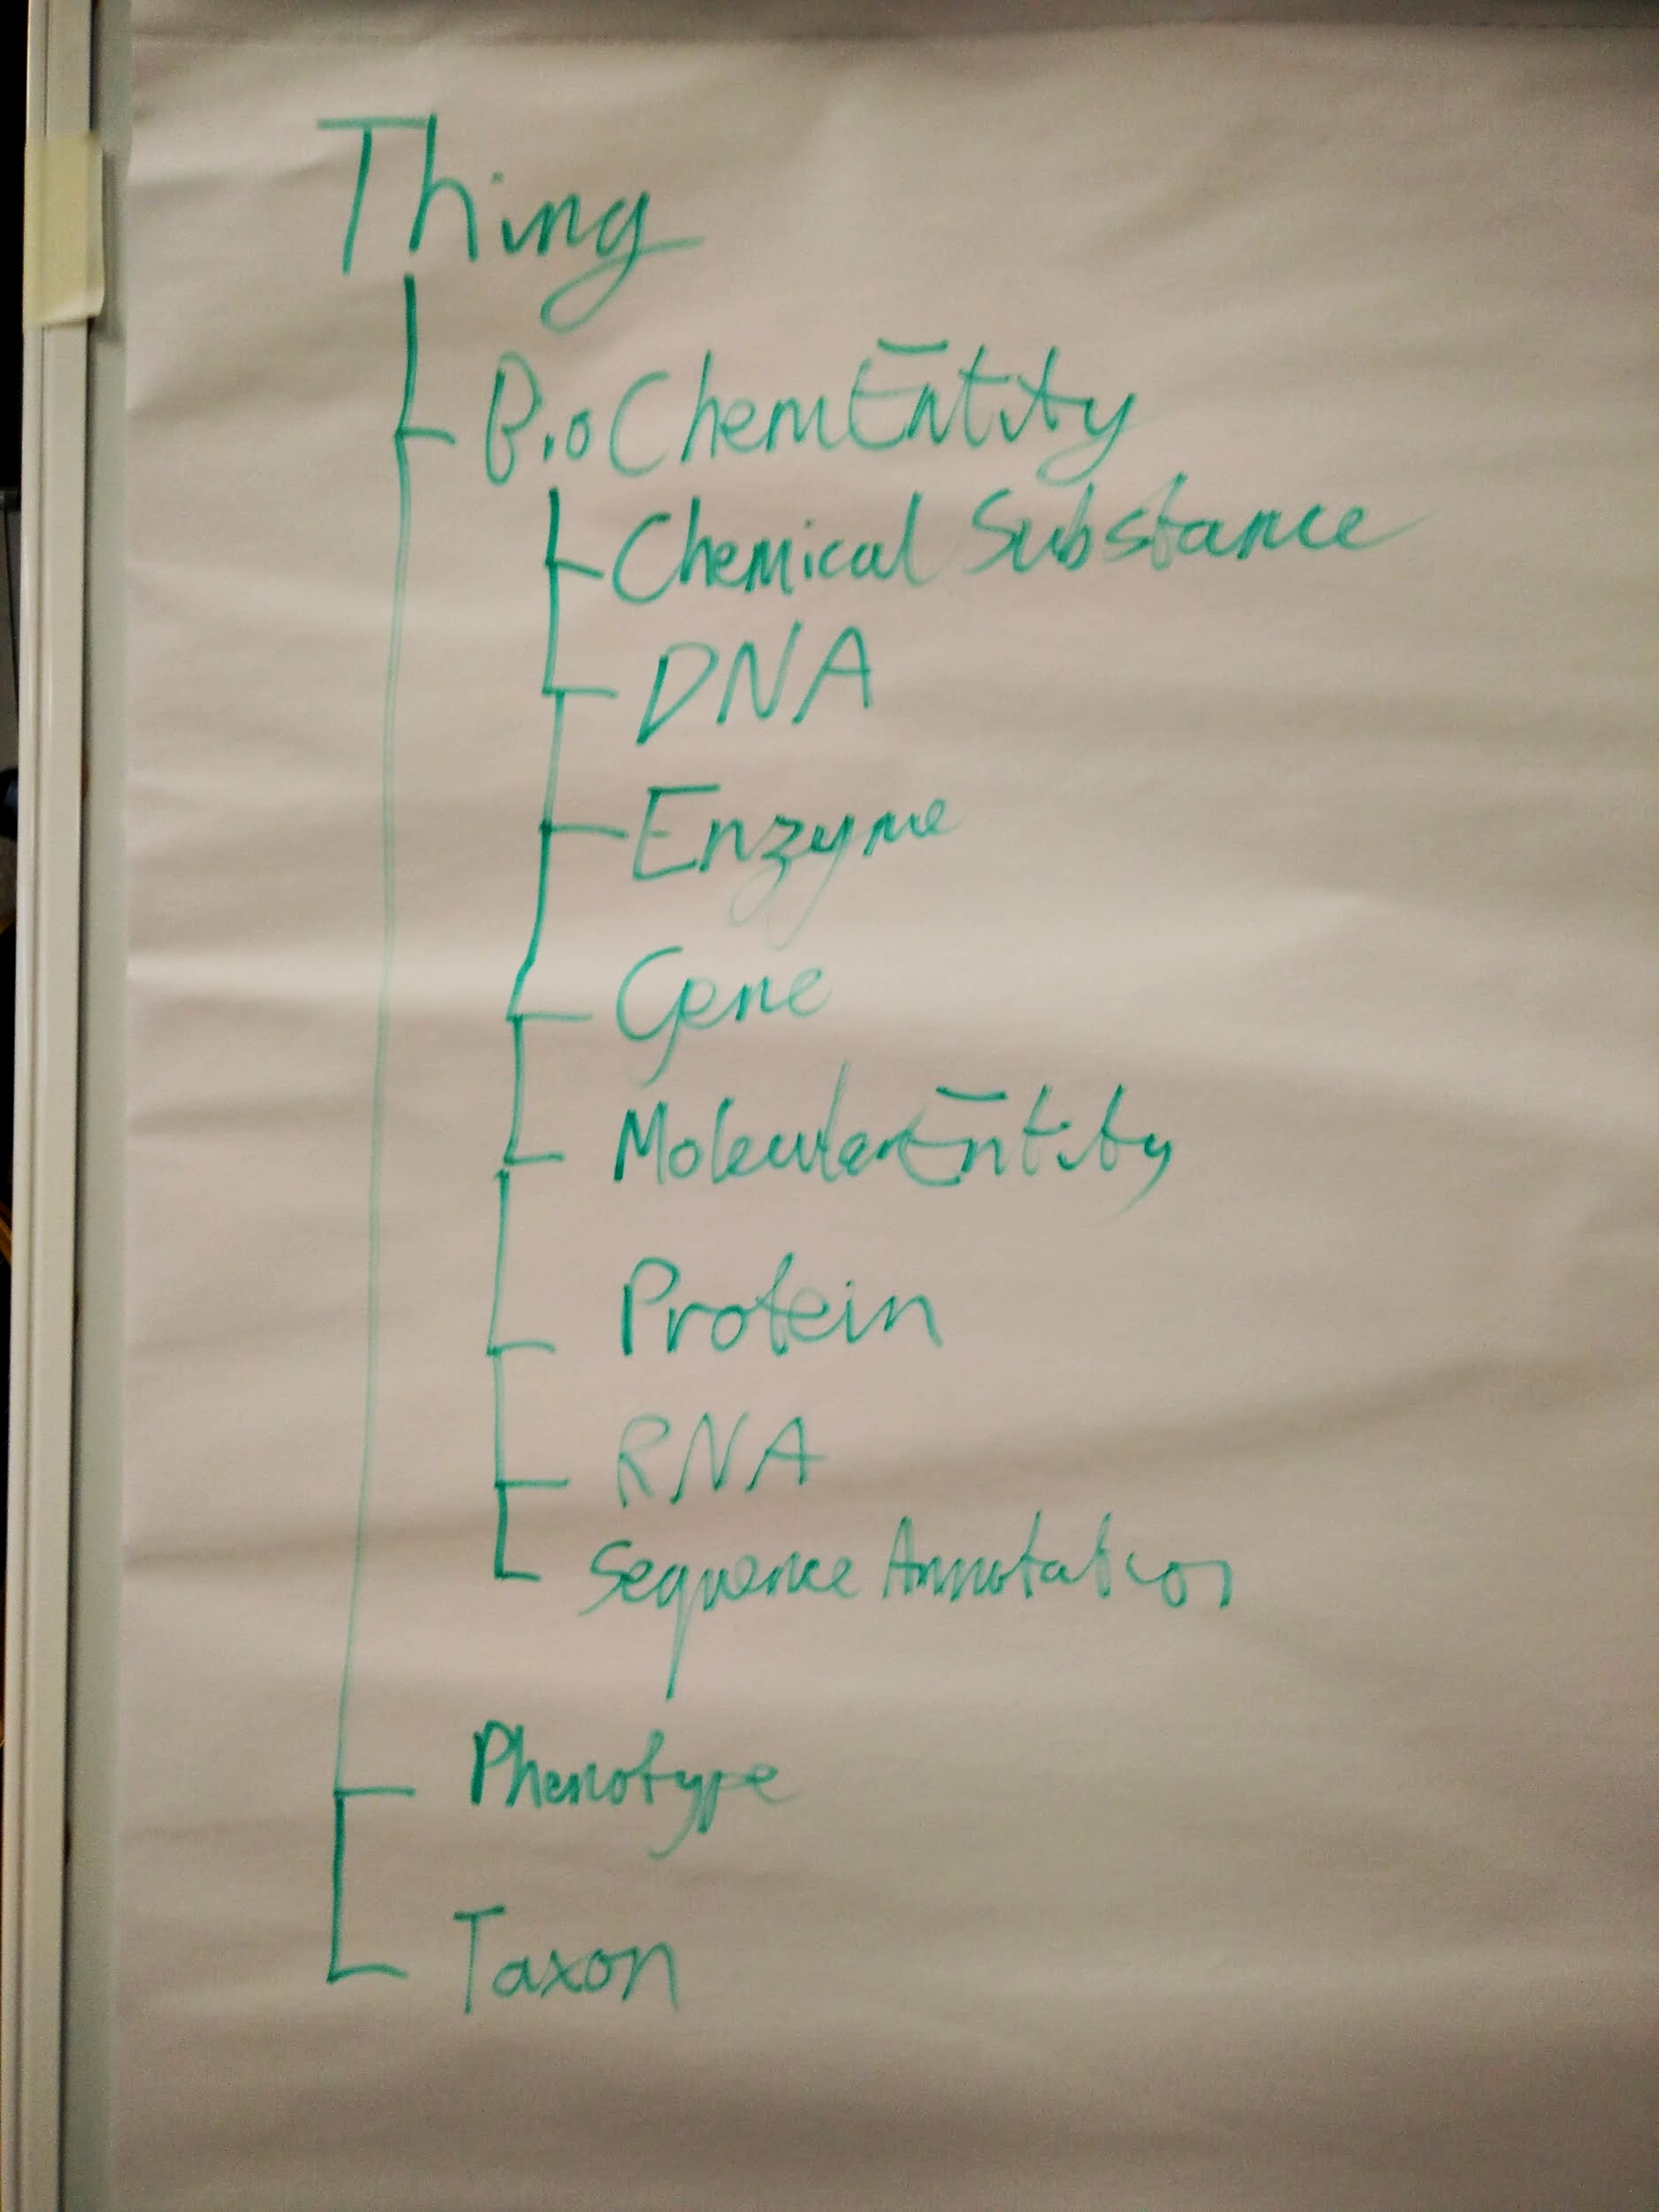 Thing
BioChemEntity
Chemical Substance
DNA
Enzyme
Gene
MolecularEntity
Protein
RNA
Sequence Annotation
Phenotype
Taxon